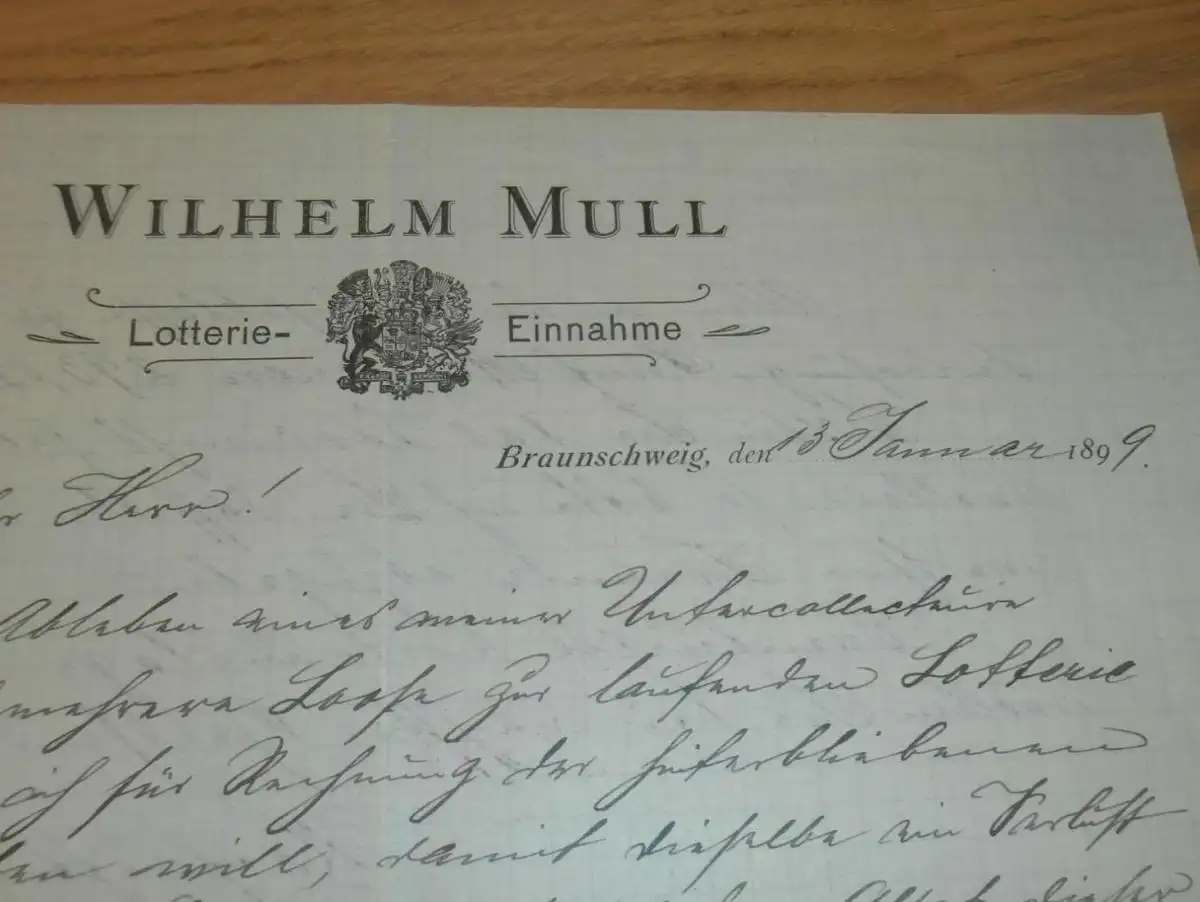 WILHELM MULL
Lotterie- Einnahme
Braunschweig, den 13 Januar 1899.
Herr!
Ableben eines meiner Untercollecteure
mehrere Loose zur laufenden Lotterie
ich für Rechnung der hinterbliebenen
will, damit dieselbe ein Verlust
dieser